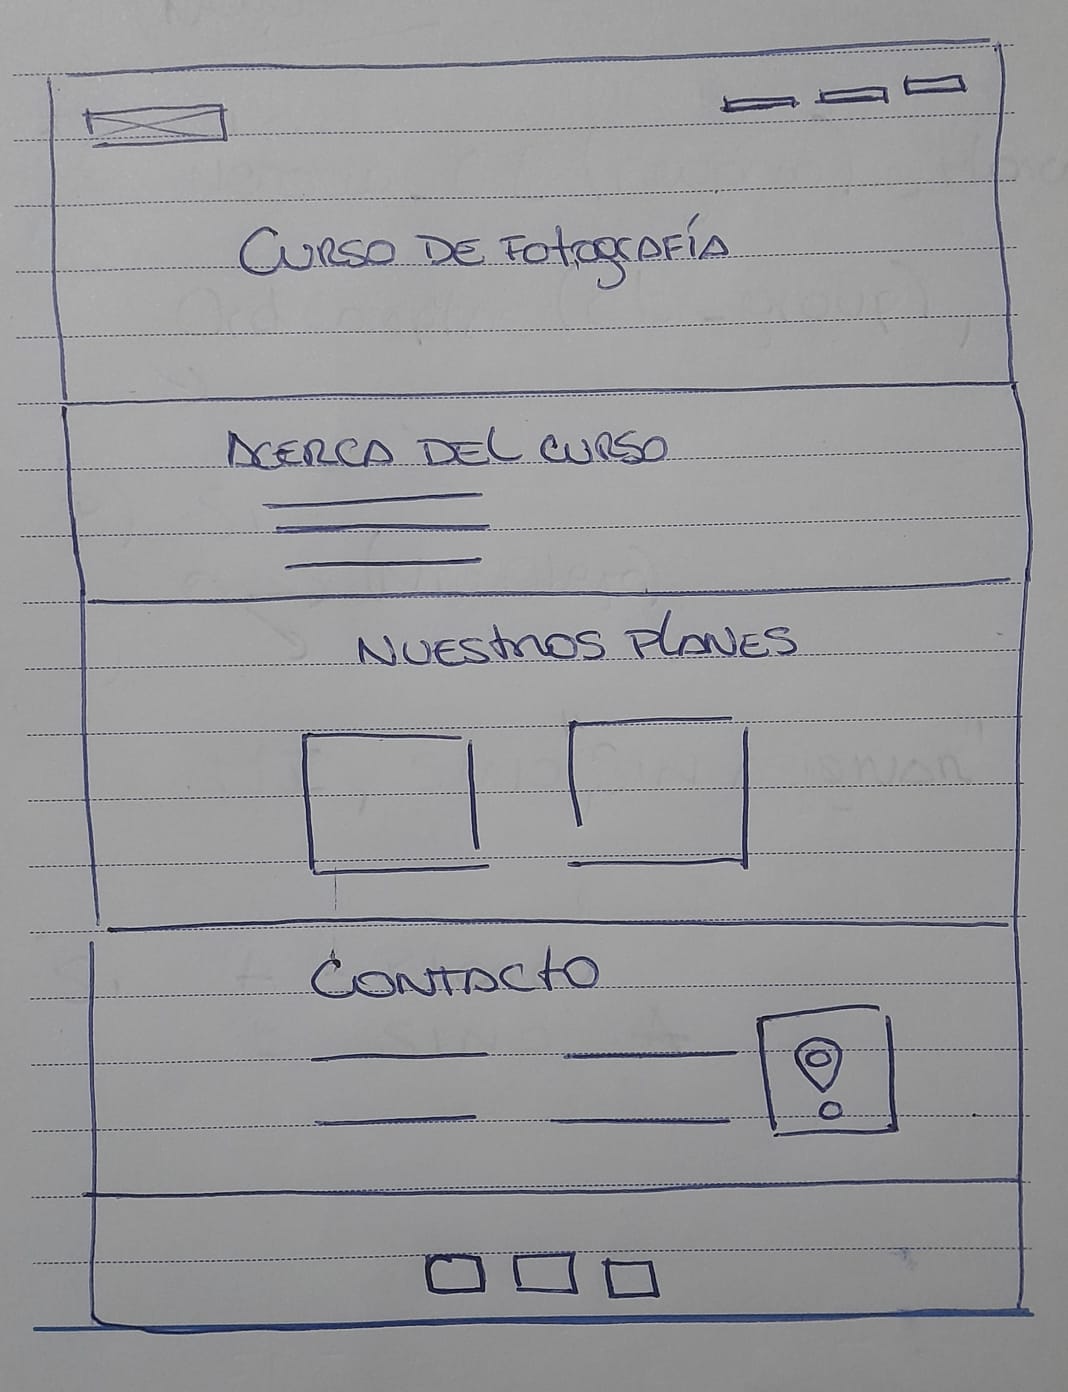 CURSO DE FOTOGRAFÍA
ACERCA DEL CURSO
NUESTROS PLANES
CONTACTO